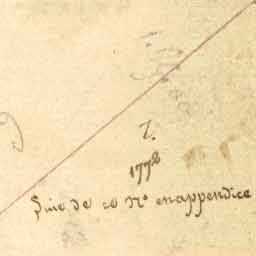 7.
1772
Suie de ce N° en appendice